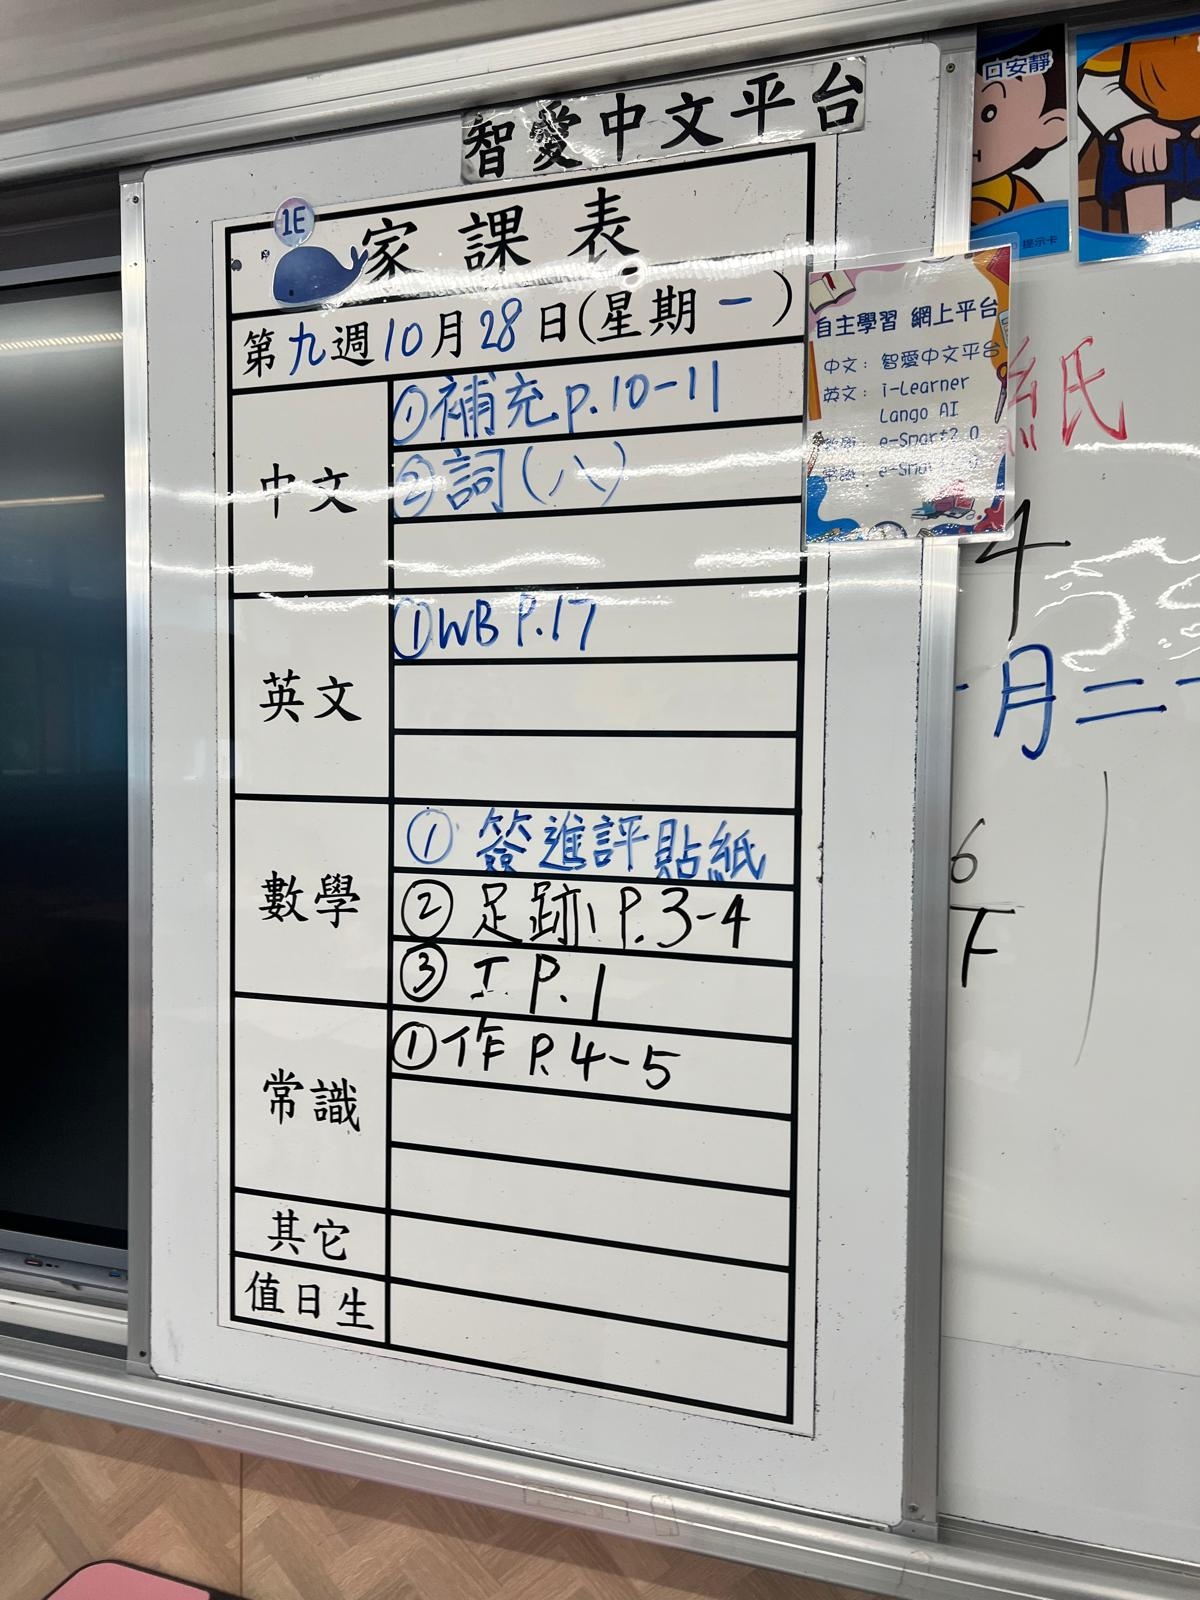 智愛中文平台
1E
家課表
第九週10月28日(星期一)
中文
①補充P.10-11
②詞(八)
英文
①WB P.17
數學
① 簽進評貼紙
② 足跡 P.3-4
③ 工 P.1
常識
①作 P.4-5
其它
值日生
口安靜
提示卡
自主學習 網上平台
中文: 智愛中文平台
英文: i-Learner
Lango AI
數學: e-Smart2.0
常識:
紙
4
月二
6
F